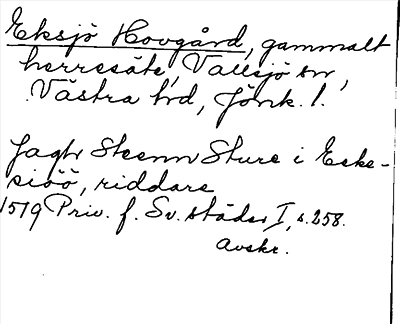 Eksjö Hovgård, gammalt
herresäte, Vallsjö sn,
Västra hd, Jönk. l.
Jagh Steenn Sture i Eske-
siöö, riddare
1579 Priv. f. Sv. städer I, s. 258.
Avskr.